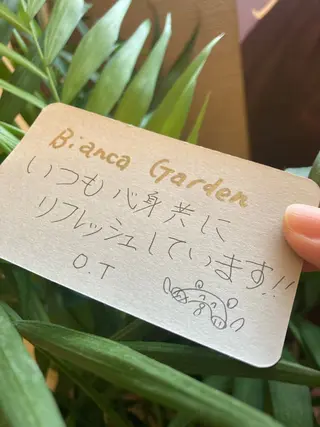 Bianca Garden
いつも心身共に
リフレッシュしています!!
O.T